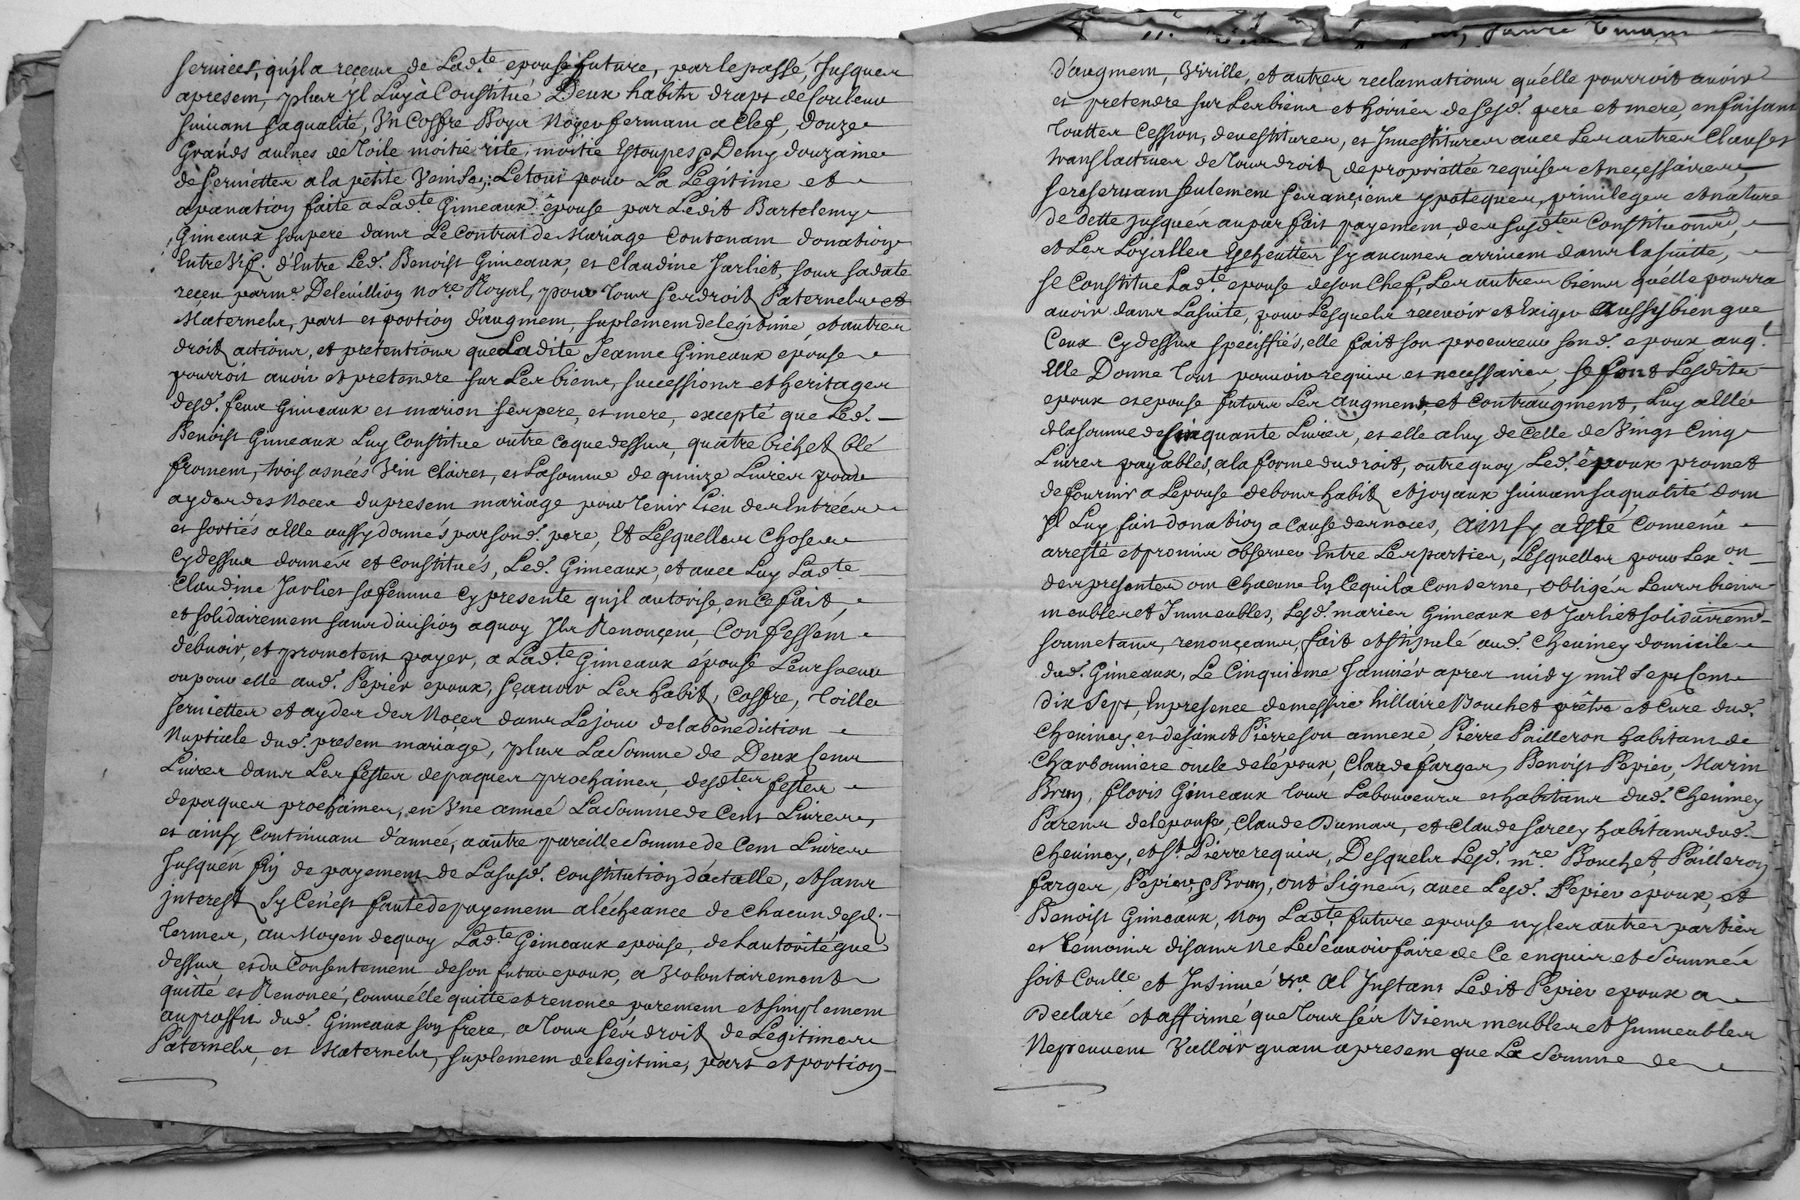 services, qu'jl a receus de Ladte. epouse future, par le passé, Jusques
apresem, plus Jl Luy à Constitué Deux habits draps de Couleur
suivant sa qualité, Vn Coffre Boys Noyer fermam a Clef, douze
Grands aulnes de Toile moitie rite, moitie Estoupes, & Demy douzaine
de serviettes a la petite Venise; Le tout pour La Légitime et
apanation faite a Ladte. Gimeaux épouse par Ledit Bartelemy
Gimeaux son pere dans Le Contrat de Mariage Contenam donation
Entre Vif. d'Entre Led. Benoist Gimeaux, et Claudine Jarliet, sous sa date
receu par me. Deleuillion nore. Royal, pour Tous ses droits Paternels et
Maternels, part et portion d'augmem, suplemem de legitime et autres
droits actions, et pretentions que Ladite Jeanne Gimeaux epouse
pourroit avoir et pretendre sur Les biens, successions et heritages
desd. feux Gimeaux et marion ses pere, et mere, excepté que Led.
Benoist Gimeaux Luy Constitue outre ce que dessus, quatre bichets blé
fromem, trois asnées Vin Clairet, et La somme de quinze Livres pour
ayder des Noces du presem mariage pour Tenir Lieu des Entrées
et sortiés a Elle aussy donnés par sond. pere, Et Lesquelles Choses
Cy dessus donnes et constitués, Led. Gimeaux, et avec Luy Ladte.
Claudine Jarliet sa femme Cy presente qu'jl autorise, en Ce fait,
et solidairemem sans division a quoy Jls Renonçem, Confessem
debvoir, et prometent payer, a Ladte. Gimeaux épouse Leur soeur
ou pour elle aud. Pepier epoux, sçavoir Les habits, Coffre, Toilles
serviettes et aydes des Noçes dans Le jour de la bénédiction
Nuptiale dud. presem mariage, plus La somme de Deux Cens
Livres dans Les festes de paques prochaines, desdtes. festes
de paques prochaines, en Vne année La somme de Cent Livres,
et ainsy Continuam d'année, a autre pareille somme de Cem Livres
Jusqu'en fin de payemem de La susd. Constitution d'actalle, et sans
interest Sy Ce n'est faute de payemem a l'écheance de Chacun desd.
Termes, au Moyen de quoy Ladte. Gimeaux epouse, de L'autorité que
dessus, et du Consentement de son futur epoux, a Volontairement
quitté et Renoncé, Comme elle quitte et renonce purement et simplement
au proffit dud. Gimeaux son frere, a Tous ses droits de Légitimes
Paternels, et Maternels, suplemem de legitime, part et portion
d'augmem, Virille, et autres reclamations qu'elle pourroit avoir
et pretendre sur Les biens et hoiries de sesd. pere et mere, en faisant
Touttes Cession, devestitures, et Investitures avec Les autres Clauses
translatives de Tour droits de propriottée requises et neçessaires,
se reservam seulement ses ançiens ypoteques, privileges et nature
de dette jusqués au parfait payemem, des susdtes. Constitutions,
et Les Loyalles Escheuttes sy aucunes arrivem dans la suitte,
se Constitue Ladte. epouse de son Chef, Les autres biens qu'elle pourra
avoir dans La suite, pour Lesquels recevoir et Exiger Aussy bien que
Ceux Cy dessus speciffiés, elle fait son procureur sond. epoux auql.
Elle Donne Tout pouvoir requis et necessaires se font Lesdits
epoux et epouse futurs Les augment, et Contraugment, Luy a Elle
de la somme de Cinquante Livres, et elle a luy de Celle de Vingt Cinq
Livres payables, a la forme du droit, outre quoy Led. époux promet
de fournir a L'epouse de bons habits et joyaux suivant sa qualité dom
Jl Luy fait donation a Cause des noces, Ainsy a Esté Convenu
arresté et promis observer Entre Les parties, Lesquelles pour L'exon
des presentes om Chacune En Ce qui la Conserne, obligés Leurs biens
meubles et Immeubles, Lesd. mariés Gimeaux et Jarliet solidairemt.
soumetans, renonçeans, fait et stipulé aud. Cheviney domicile
dud. Gimeaux, Le Cinquieme Janvier apres midy mil Sept Cens
Dix Sept, En presence de messire hillaire Bouchet prêtre et Curé dud.
Cheviney et de saint Pierre son annexe, Pierre Pailleron habitant de
Charbonniere oncle de l'époux, Claude farges, Benoist Pepier, Marin
Brun, floris Gimeaux Tous Laboureurs et habitans dud. Cheviney
Parens de l'epouse, Claude Dumas, et Claude sarcey habitans dud.
Cheviney, et St. Pierre requis, Desquels Lesd. mre. Bouchet, Pailleron
farges, Pepier, & Brun, ont signés, avec Lesd. Pepier epoux, et
Benoist Gimeaux, Non Ladte. future epouse ny les autres parties
et Témoins disans Ne Le Sçavoir faire de Ce enquis et Sommés
soit Coullé et Insinué &ra Al Instant Ledit Pepier epoux a
Declaré et affirmé que Tous ses Biens meubles et Immeubles
Ne peuvent Valloir quam a presem que La somme de